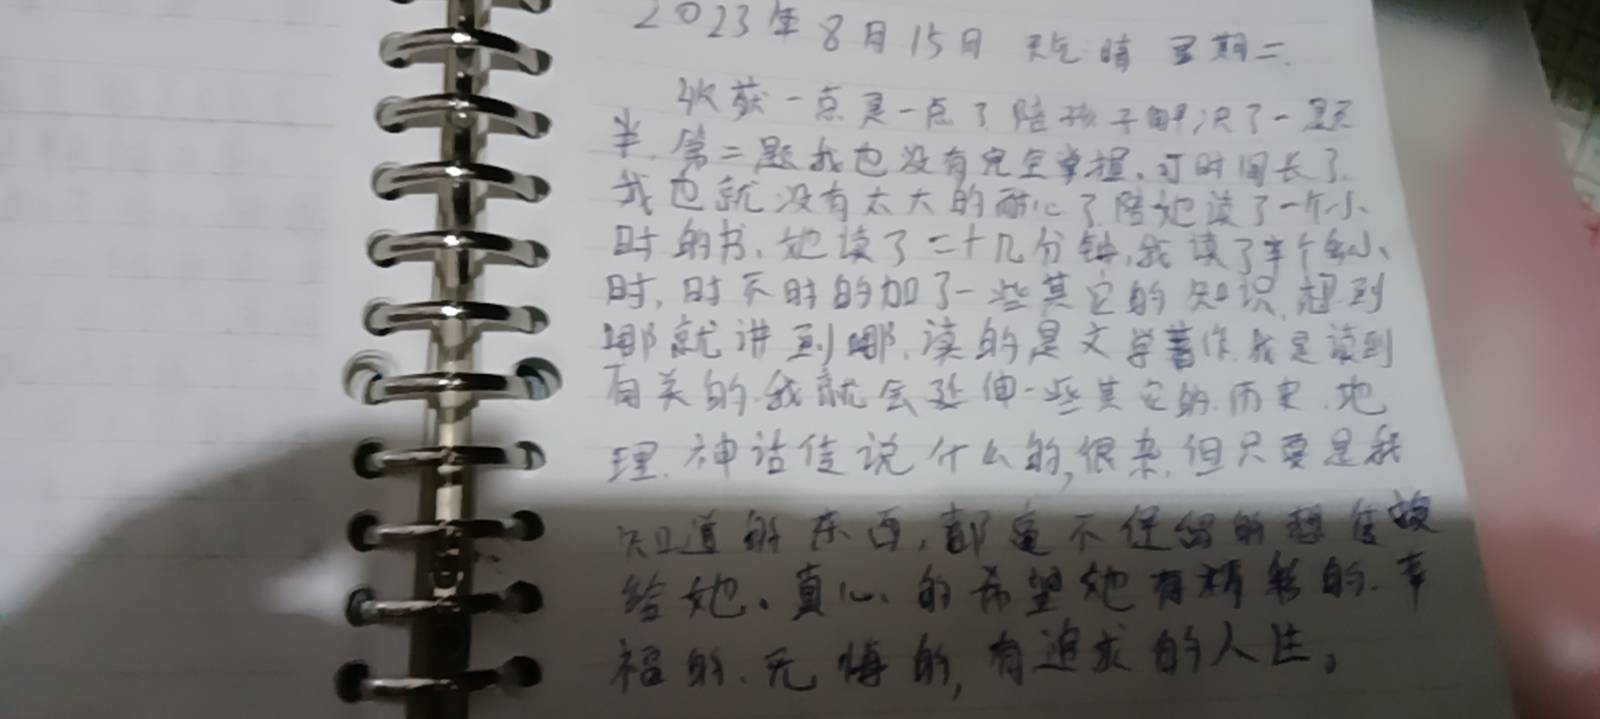 2023年8月15日 天气晴 星期二.
收获一点是一点了.陪孩子解决了一题
半.第二题我也没有完全掌握,可时间长了.
我也就没有太大的耐心了.陪她读了一个小
时的书.她读了二十几分钟,我读了半个多小
时,时不时的加了一些其它的知识.想到
哪就讲到哪.读的是文学著作.我是读到
有关的.我就会延伸一些其它的.历史.地
理.神话传说什么的,很杂.但只要是我
知道的东西,都毫不保留的想传授
给她.真心的希望她有精彩的.幸
福的.无悔的,有追求的人生。